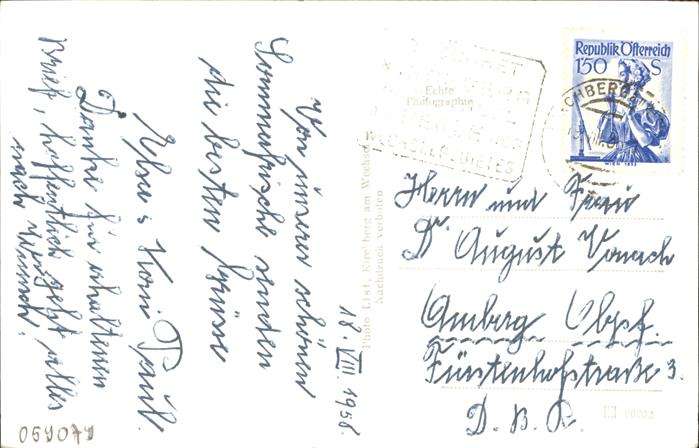 18. VIII. 1958.
Von unserer schönen
Sommerfrische senden
die besten Grüsse
Elsa & Toni Paul.
Danke für erhaltenen
Brief, hoffentlich geht alles
nach Wunsch!
059079
Echte
Photographie
Photo List, Kirchberg am Wechsel
Nachdruck verboten
Republik Österreich
150 S
WIEN 1853
CHBERG
Herrn und Frau
Dr. August Vonach
Amberg Obpf.
Fürstenhofstraße 3.
D. B. R.